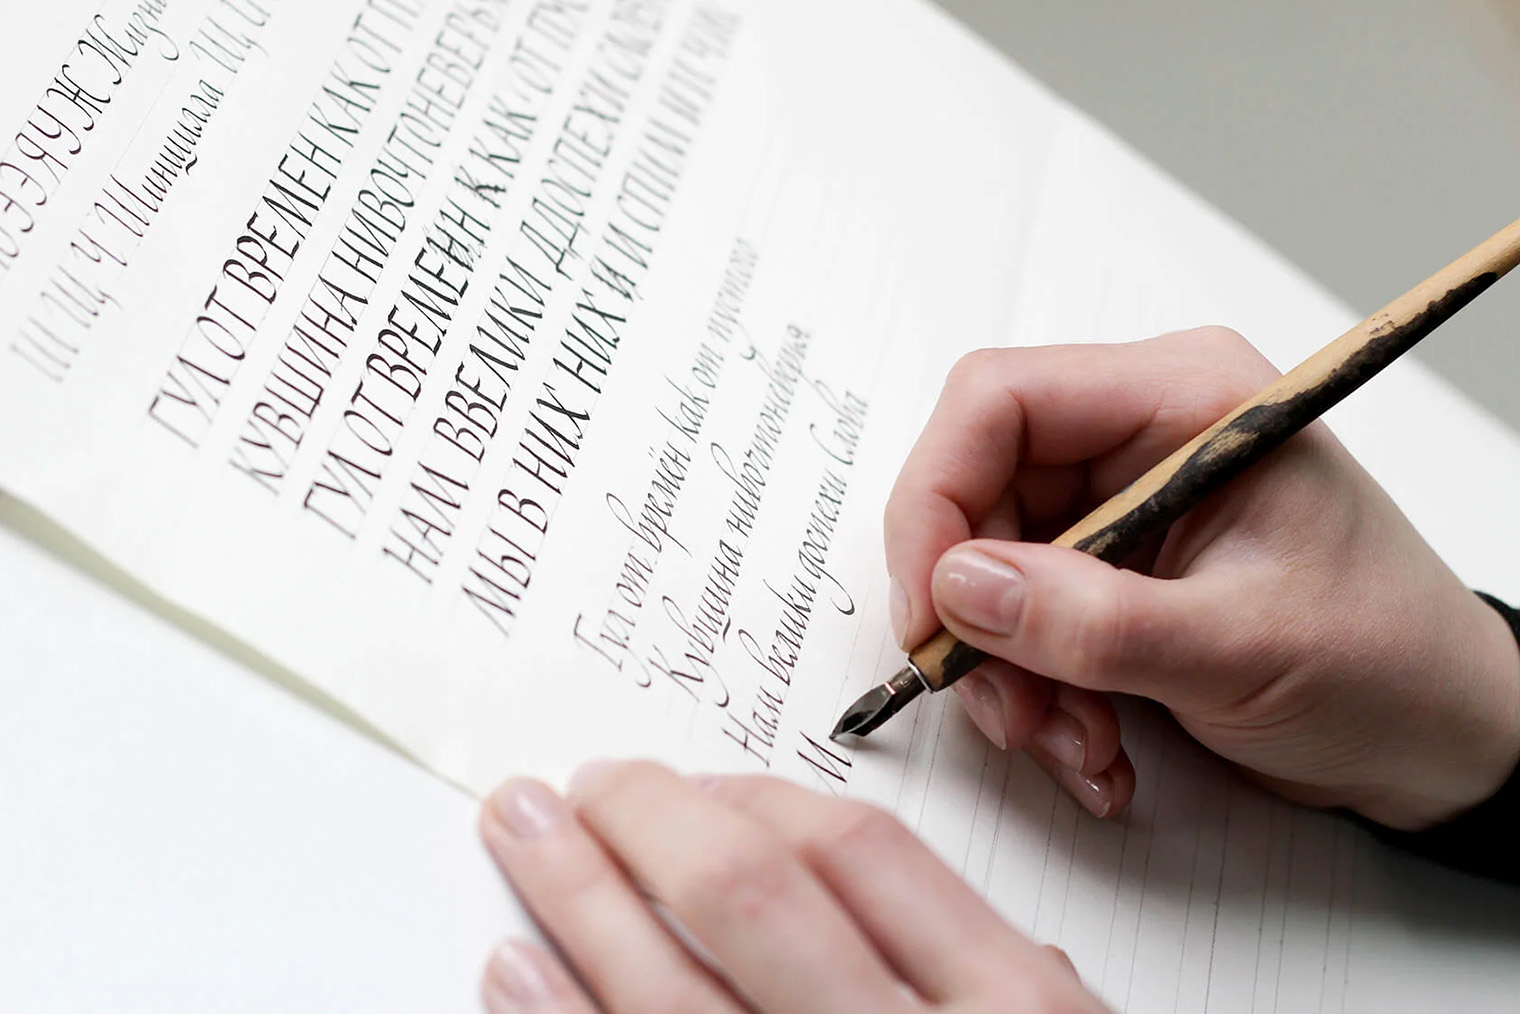 Э Я У Ж Ж Жизнь
Ш Щ Ч Шиншилла Щ Щ
ГУЛ ОТ ВРЕМЕН КАК ОТ П
КУВШИНА НИВОЧТОНЕВЕРЬ
ГУЛ ОТ ВРЕМЕН К КАК ОТ ПУ
НАМ ВВЕЛИКИ ДДОСПЕХИ СЛОВ
МЫ В НИХ НИХ И И СПИЛИ И
Гул от времён как от пустого
Кувшина нивочтоневерия.
Нам велики доспехи Слова
И